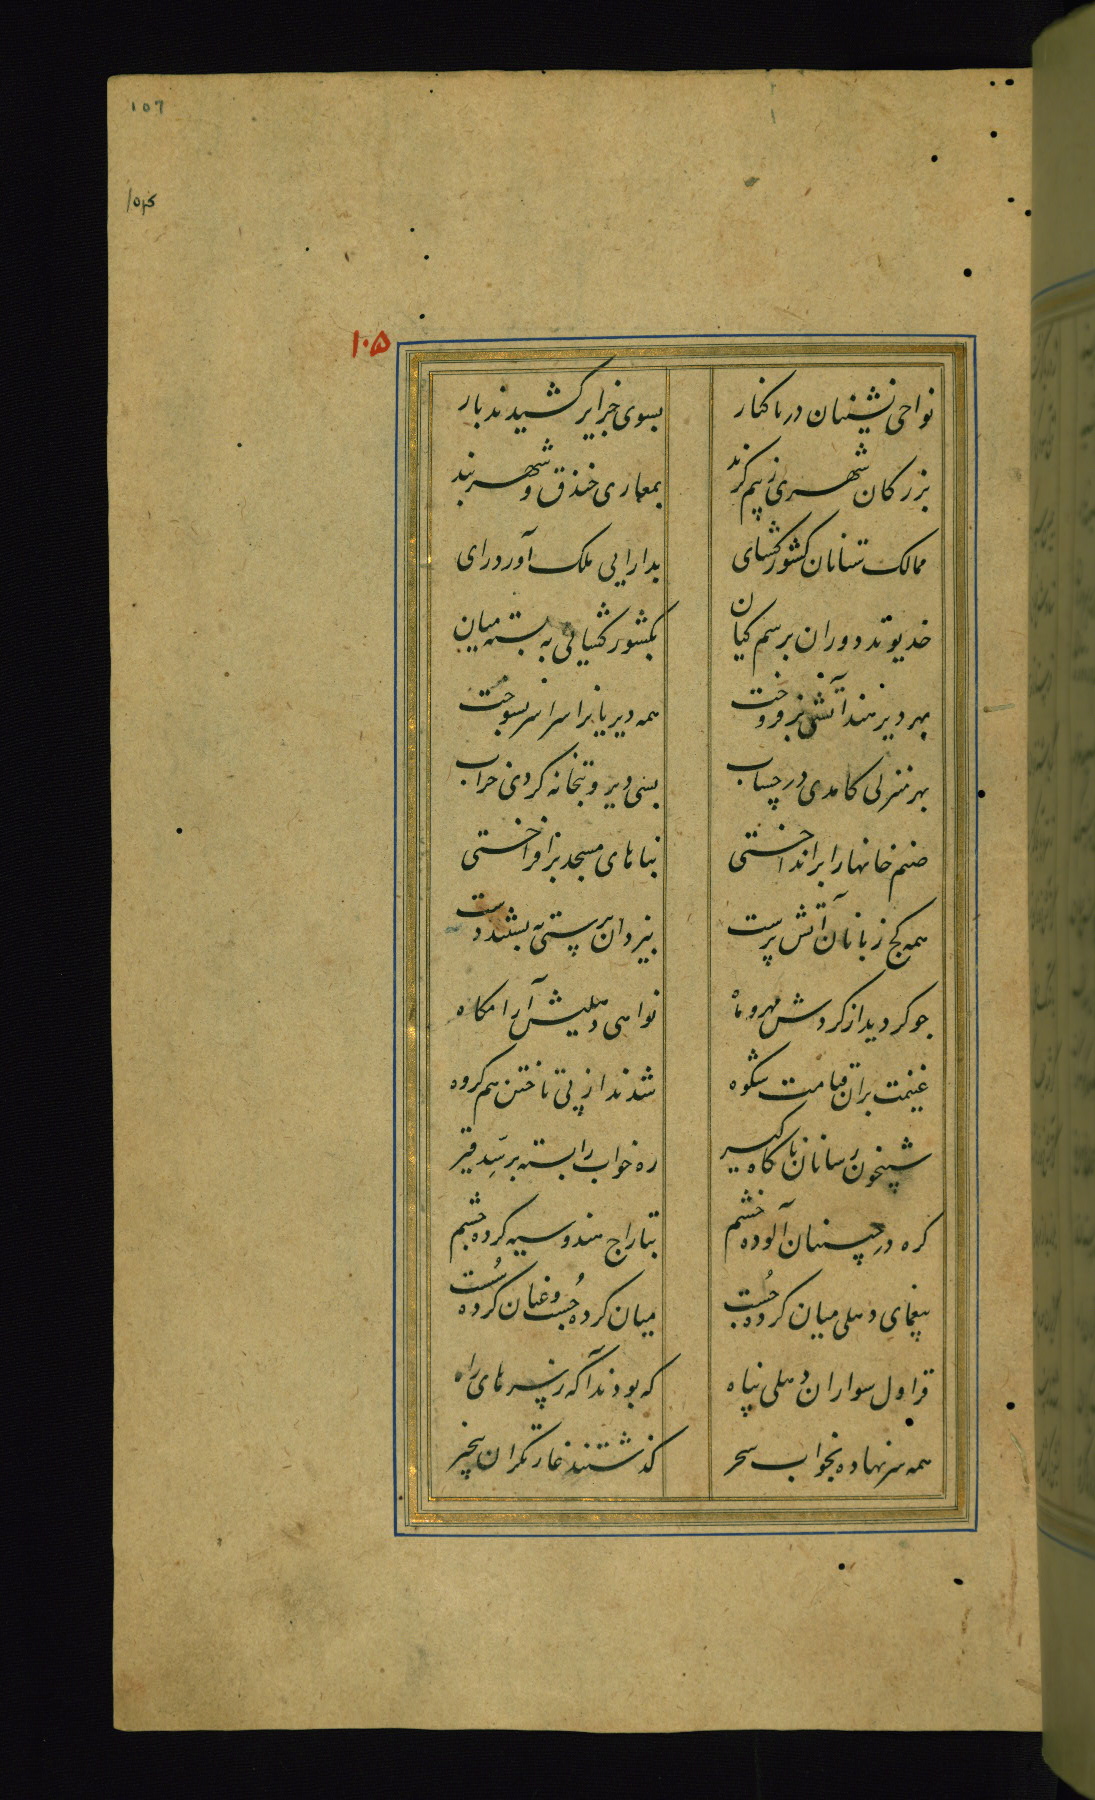 ۱۰۶
۱۰۵
۱۰۵
نواحی نشینان دریا کنار بسوی جزایر کشیدند بار
بزرکان شهری ز بیم کزند بمعماری خندق و شهربند
ممالک ستانان کشور کشای بدارایی ملک آورد رای
خدیو دوران برسم کیان بکشور کشیایی به بسته میان
بهر دیر هند آتشی بر فروخت همه دیریانرا سراسر بسوخت
بهر منزلی کامدی در حساب بسی دیر و بتخانه کردی خراب
صنم خانهارا برانداختی بناهای مسجد برافراختی
همه کج زبانان آتش پرست بیزدان پرستی دست
جو کردید از کردش مهر و ماه نواهی دهلیش آرامکاه
غنیمت بران قیامت شکوه شدند از پی تاختن هم کروه
شبیخون رسانان ناکاه کیر ره خواب را بسته بر
کره در جبینان آلوده خشم بتاراج هندو سیه کرده چشم
بیغمای دهلی میان کرده چست میان کرده چست و عنان کرده سست
قراول سواران دهلی پناه که بودند آکه ز سرهای راه
همه سر نهاده بخواب سحر کذشتند غارتکران بیخبر